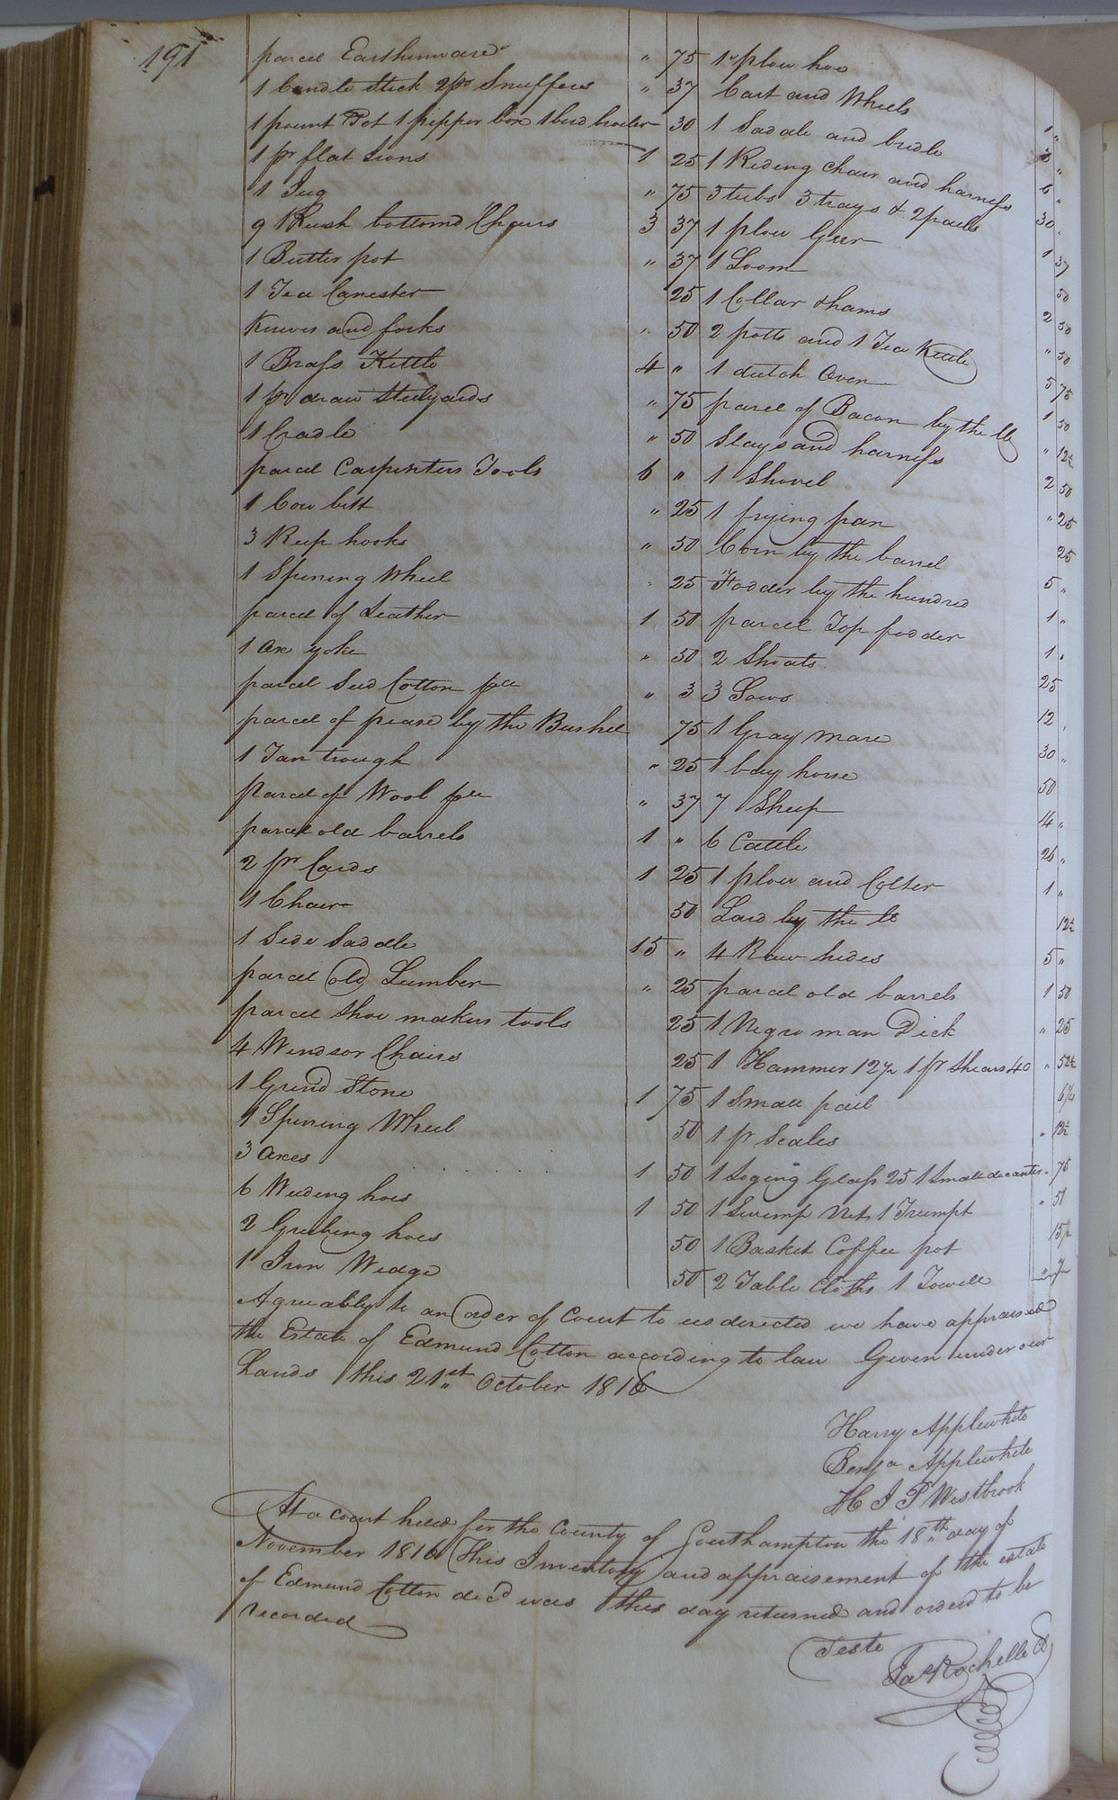 191
parcel Earthenware " 75
1 Candle Stick 2 pr Snuffers " 37
1 pount Pot 1 pepper box 1 bird broiler 30
1 pr flat irons 1 25
1 Jug " 75
9 Rush bottomd Chairs 3 37
1 Butter pot " 37
1 Tea Canester 25
Knives and forks " 50
1 Brass Kettle 4 "
1 pr draw Steelyards " 75
1 Cradle " 50
parcel Carpenters Tools 6 "
1 Cow bell " 25
3 Reep hooks " 50
1 Spinning Wheel " 25
parcel of Leather 1 50
1 ox yoke " 50
parcel Seed Cotton " 3
parcel of pease by the Bushel 75
1 Tan trough " 25
parcel of Wool " 37
parcel old barrels 1 "
2 pr Cards 1 25
1 Chair 50
1 Side Saddle 15 "
parcel old Lumber " 25
parcel Shoe makers tools 25
4 Windsor Chairs 25
1 Grind Stone 1 75
1 Spining Wheel 50
3 axes 1 50
6 Weeding hoes 1 50
2 Grubing hoes 50
1 Iron Wedge 50
1 plow hoe
Cart and Wheels
1 Saddle and bridle
1 Riding chair and harness
3 tubs 3 trays & 2 pails
1 plow Geer
1 Loom
1 Collar & hams
2 potts and 1 Tea Kettle
1 dutch Oven
parcel of Bacon by the lb
Slays and harness
1 Shovel
1 frying pan
Corn by the barrel
Fodder by the hundred
parcel Top fodder
2 Shoats
3 Sows
1 Gray mare
1 bay horse
7 Sheep
6 Cattle
1 plow and Colter
Lard by the lb
4 Raw hides
parcel old barrels
1 Negro man Dick
1 Hammer 12½ 1 pr Shears 40
1 Small pail
1 pr Scales
1 Loging Glass 25 1 Small decanter
1 Net 1 Trumpt
1 Basket Coffee pot
2 Table Cloths 1 Towell
Agreeably to an order of Court to us directed we have appraised
the Estate of Edmund Cotton according to law Given under our
hands this 21st October 1816
Harry Applewhite
Benja Applewhite
H J P Westbrook
At a court held for the County of Southampton the 18th day of
November 1816 This Inventory and appraisement of the estate
of Edmund Cotton decd was this day returned and ordered to be
recorded
Teste
Ja Rochelle